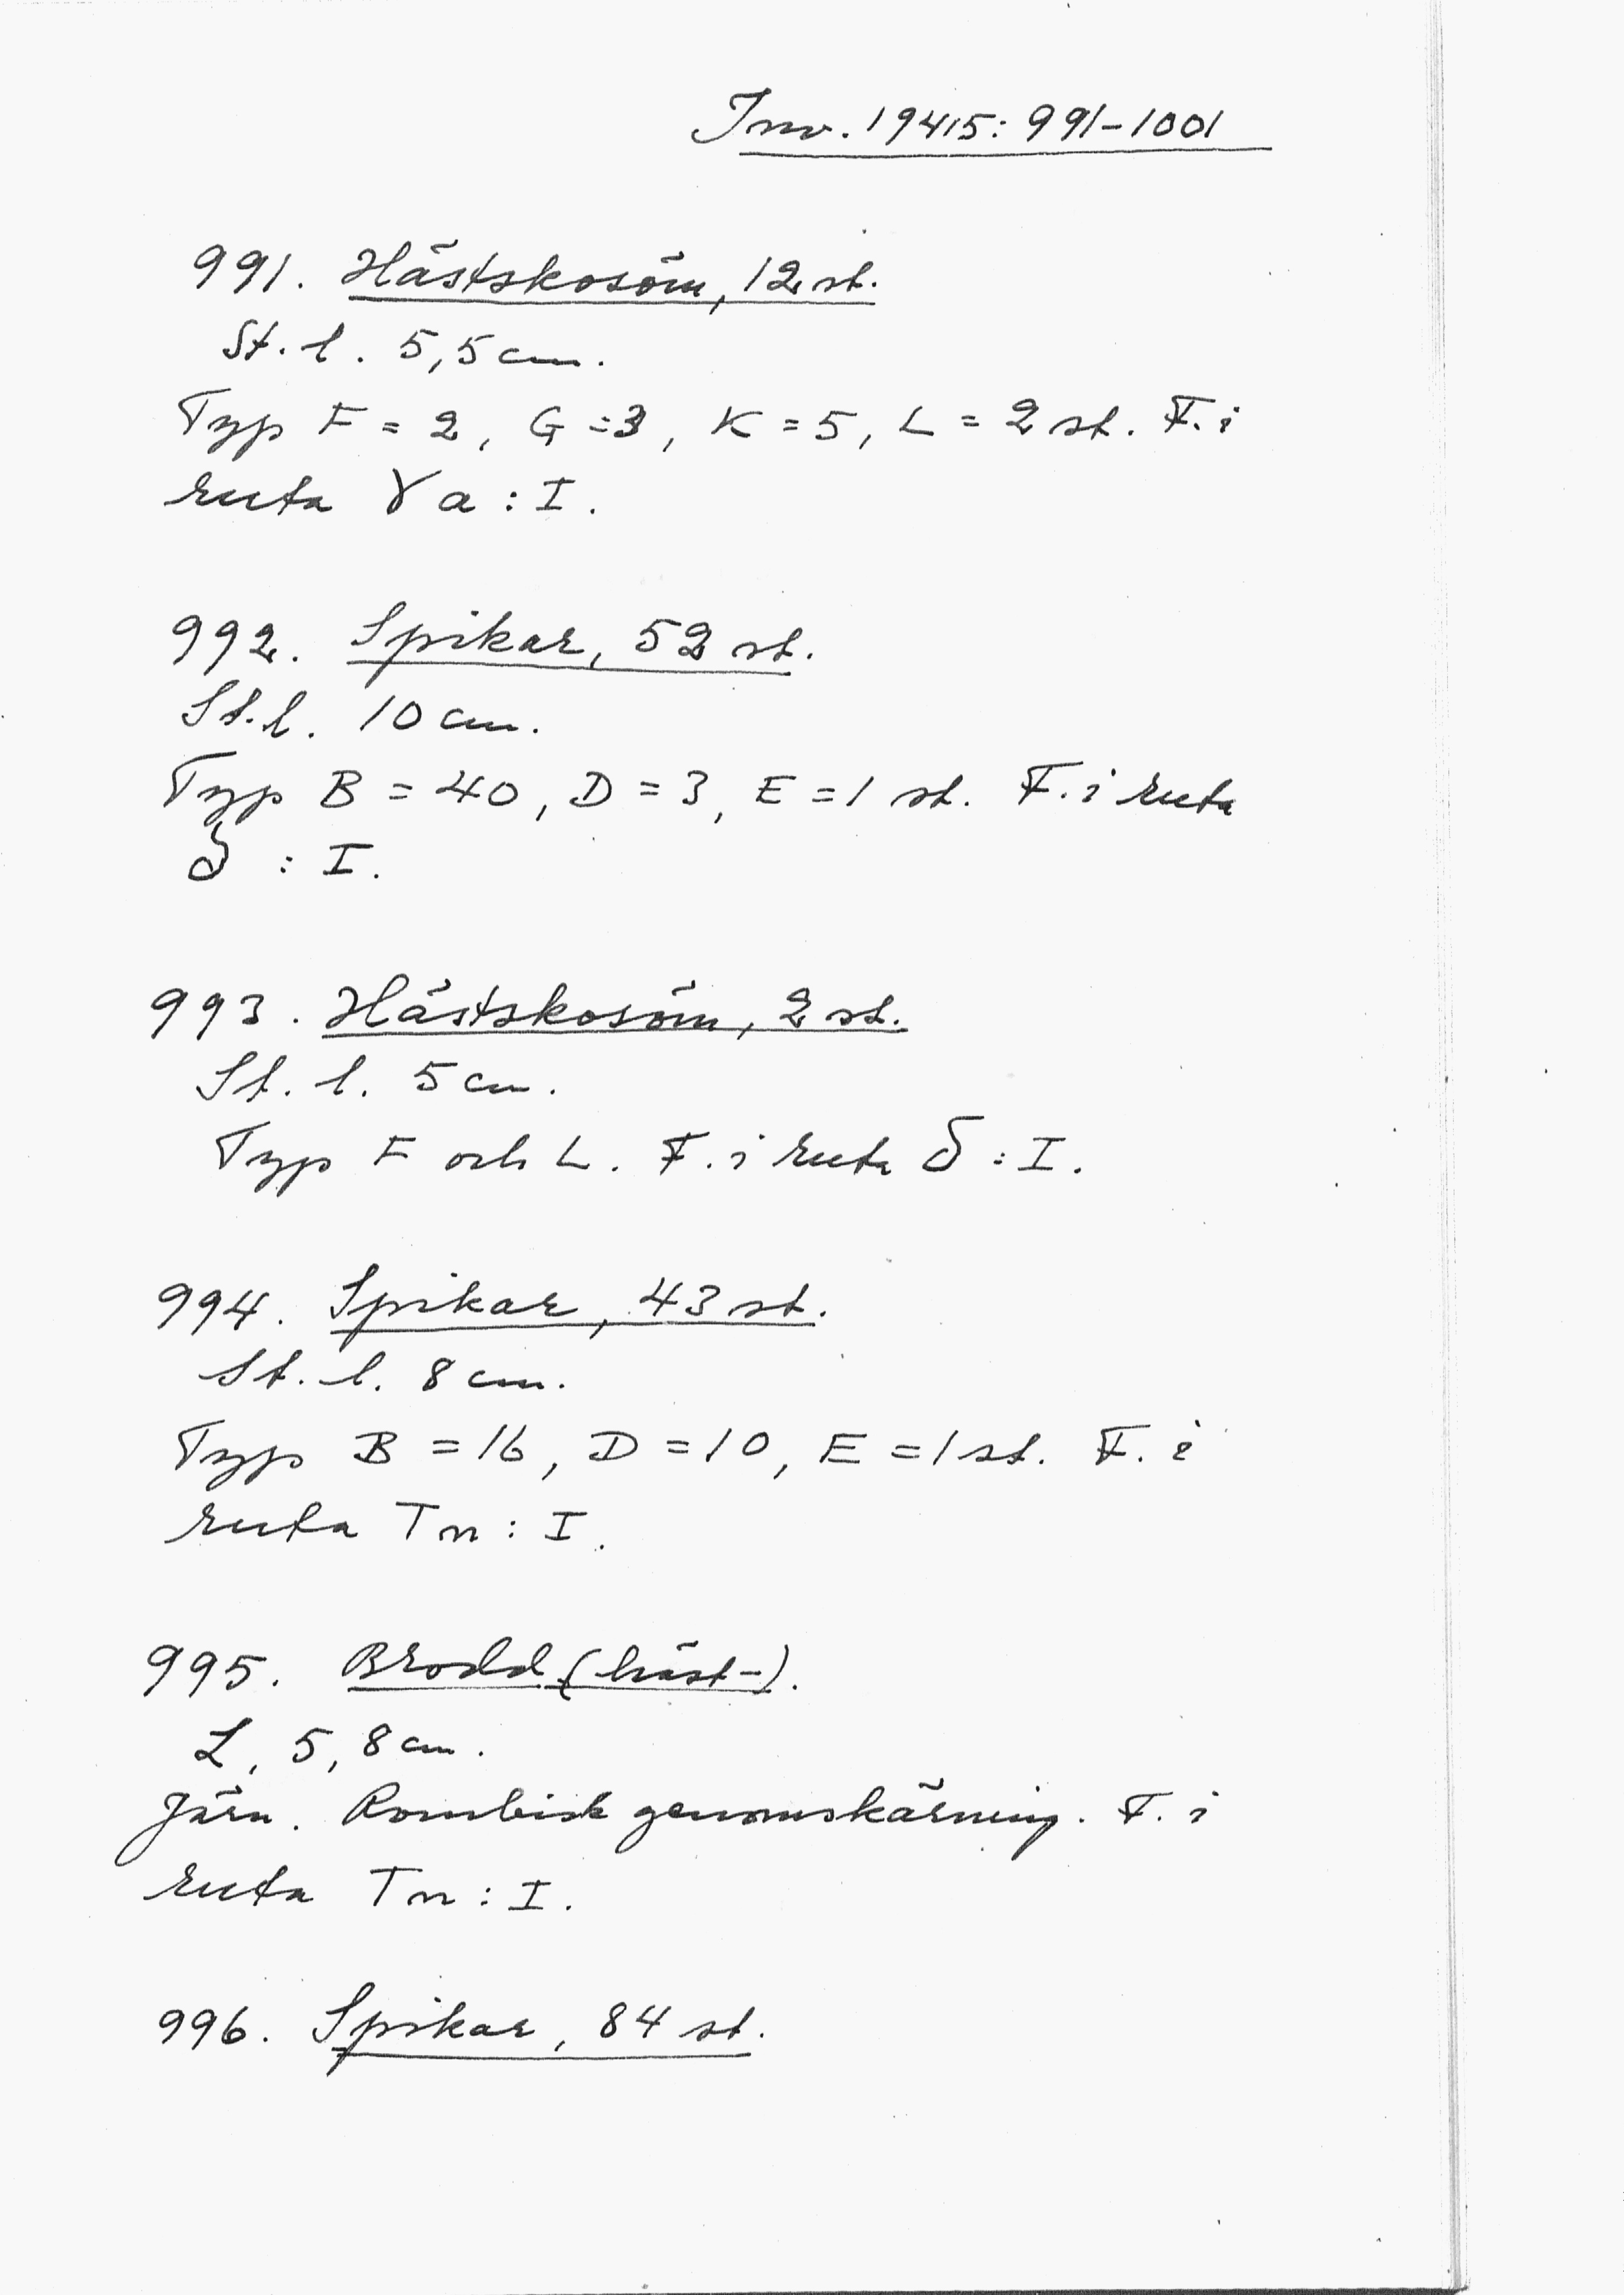 Inv. 19415: 991-1001
991. Hästskosöm, 12 st.
St. l. 5,5 cm.
Typ F = 2, G = 3, K = 5, L = 2 st. F. i
ruta γ a : I.
992. Spikar, 52 st.
St. l. 10 cm.
Typ B = 40, D = 3, E = 1 st. F. i ruta
δ : I.
993. Hästskosöm, 2 st.
St. l. 5 cm.
Typ F och L. F. i ruta δ : I.
994. Spikar, 43 st.
St. l. 8 cm.
Typ B = 16, D = 10, E = 1 st. F. i
ruta Tn : I.
995. Brodd (häst-).
L, 5,8 cm.
Järn. Rombisk genomskärning. F. i
ruta Tn : I.
996. Spikar, 84 st.